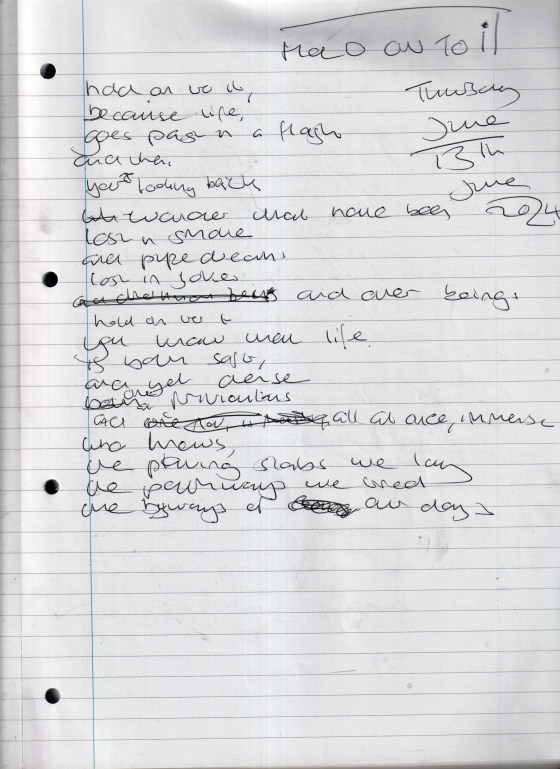 HOLD ON TO it
hold on to it,
Thursday
because life,
June
goes past in a flash
13th
and then
June
your looking back
wonder what have been
2024
lost in smoke
and pipe dreams
lost in jokes
and over beings
hold on to it
you know when life
is both soft,
and yet dense
and all at once, immense
who knows,
the paving slabs we lay
the pathways we tread
the byways of our days